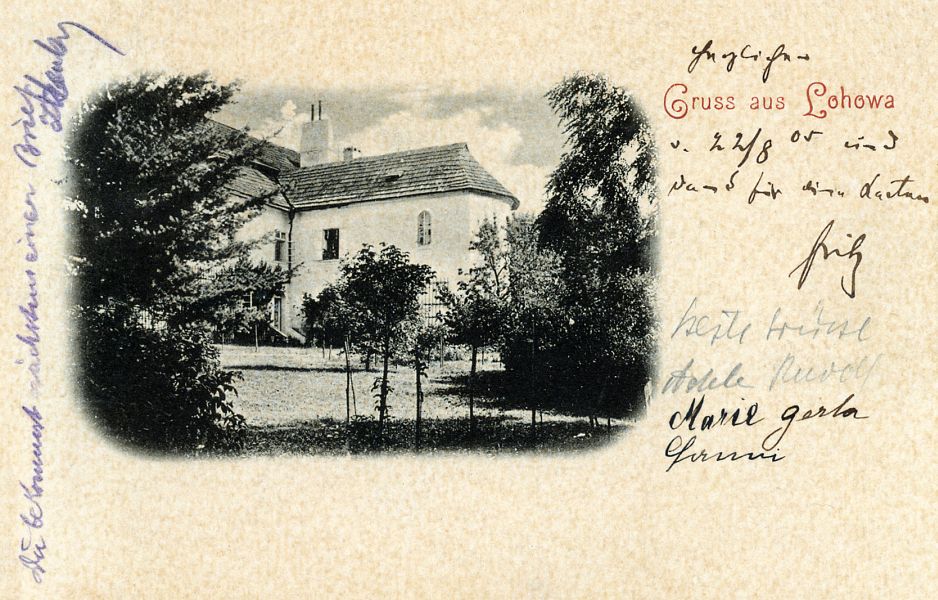 Herzlichen
Gruss aus Lohowa
v. 22/8 05 und
Dank für die Karten
Fritz
Beste Grüsse
Adele Rudolf
Marie Gerta
Fanni
Du bekommst nächstens einen Brief